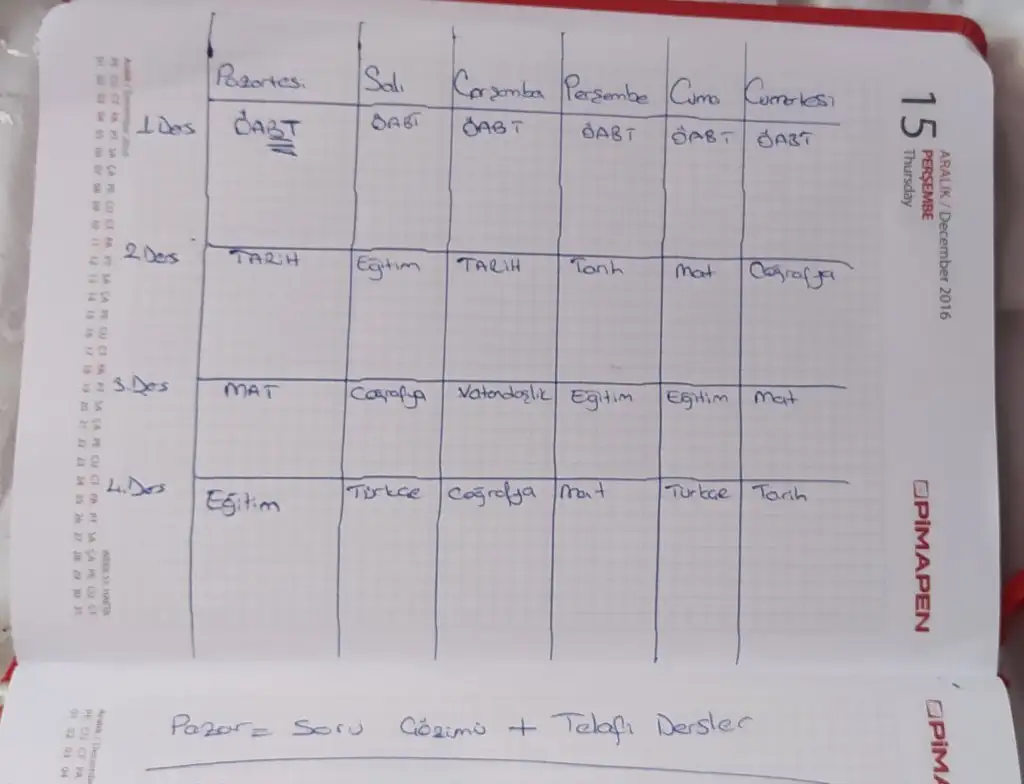 Pazartesi Salı Çarşamba Perşembe Cuma Cumartesi
1 Ders ÖABT ÖABT ÖABT ÖABT ÖABT ÖABT
2 Ders TARiH Eğitim TARiH Tarih Mat Coğrafya
3. Des MAT Coğrafya Vatandaşlik Eğitim Eğitim Mat
4. Des Eğitim Türkçe Coğrafya Mat Türkçe Tarih
Pazar = Soru Çözümü + Telafi Dersler
15
ARALIK / December 2016
PERŞEMBE
Thursday
PiMAPEN
PiM